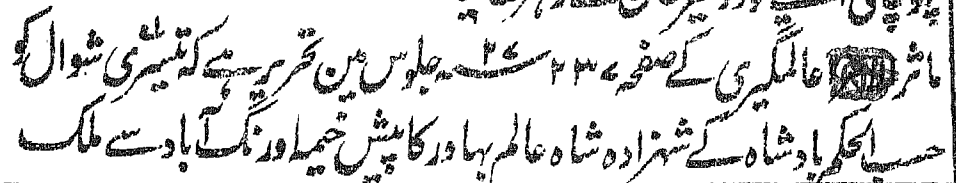 ماثر عالمگیری کے صفحہ ۲۳۷ سنہ ۲۷ جلوس مین تحریر ہے کہ تیسری شوال کو
حسب الحکم بادشاہ کے شہزادہ شاہ عالم بہادر کا پیش خیمہ اورنگ آباد سے ملک